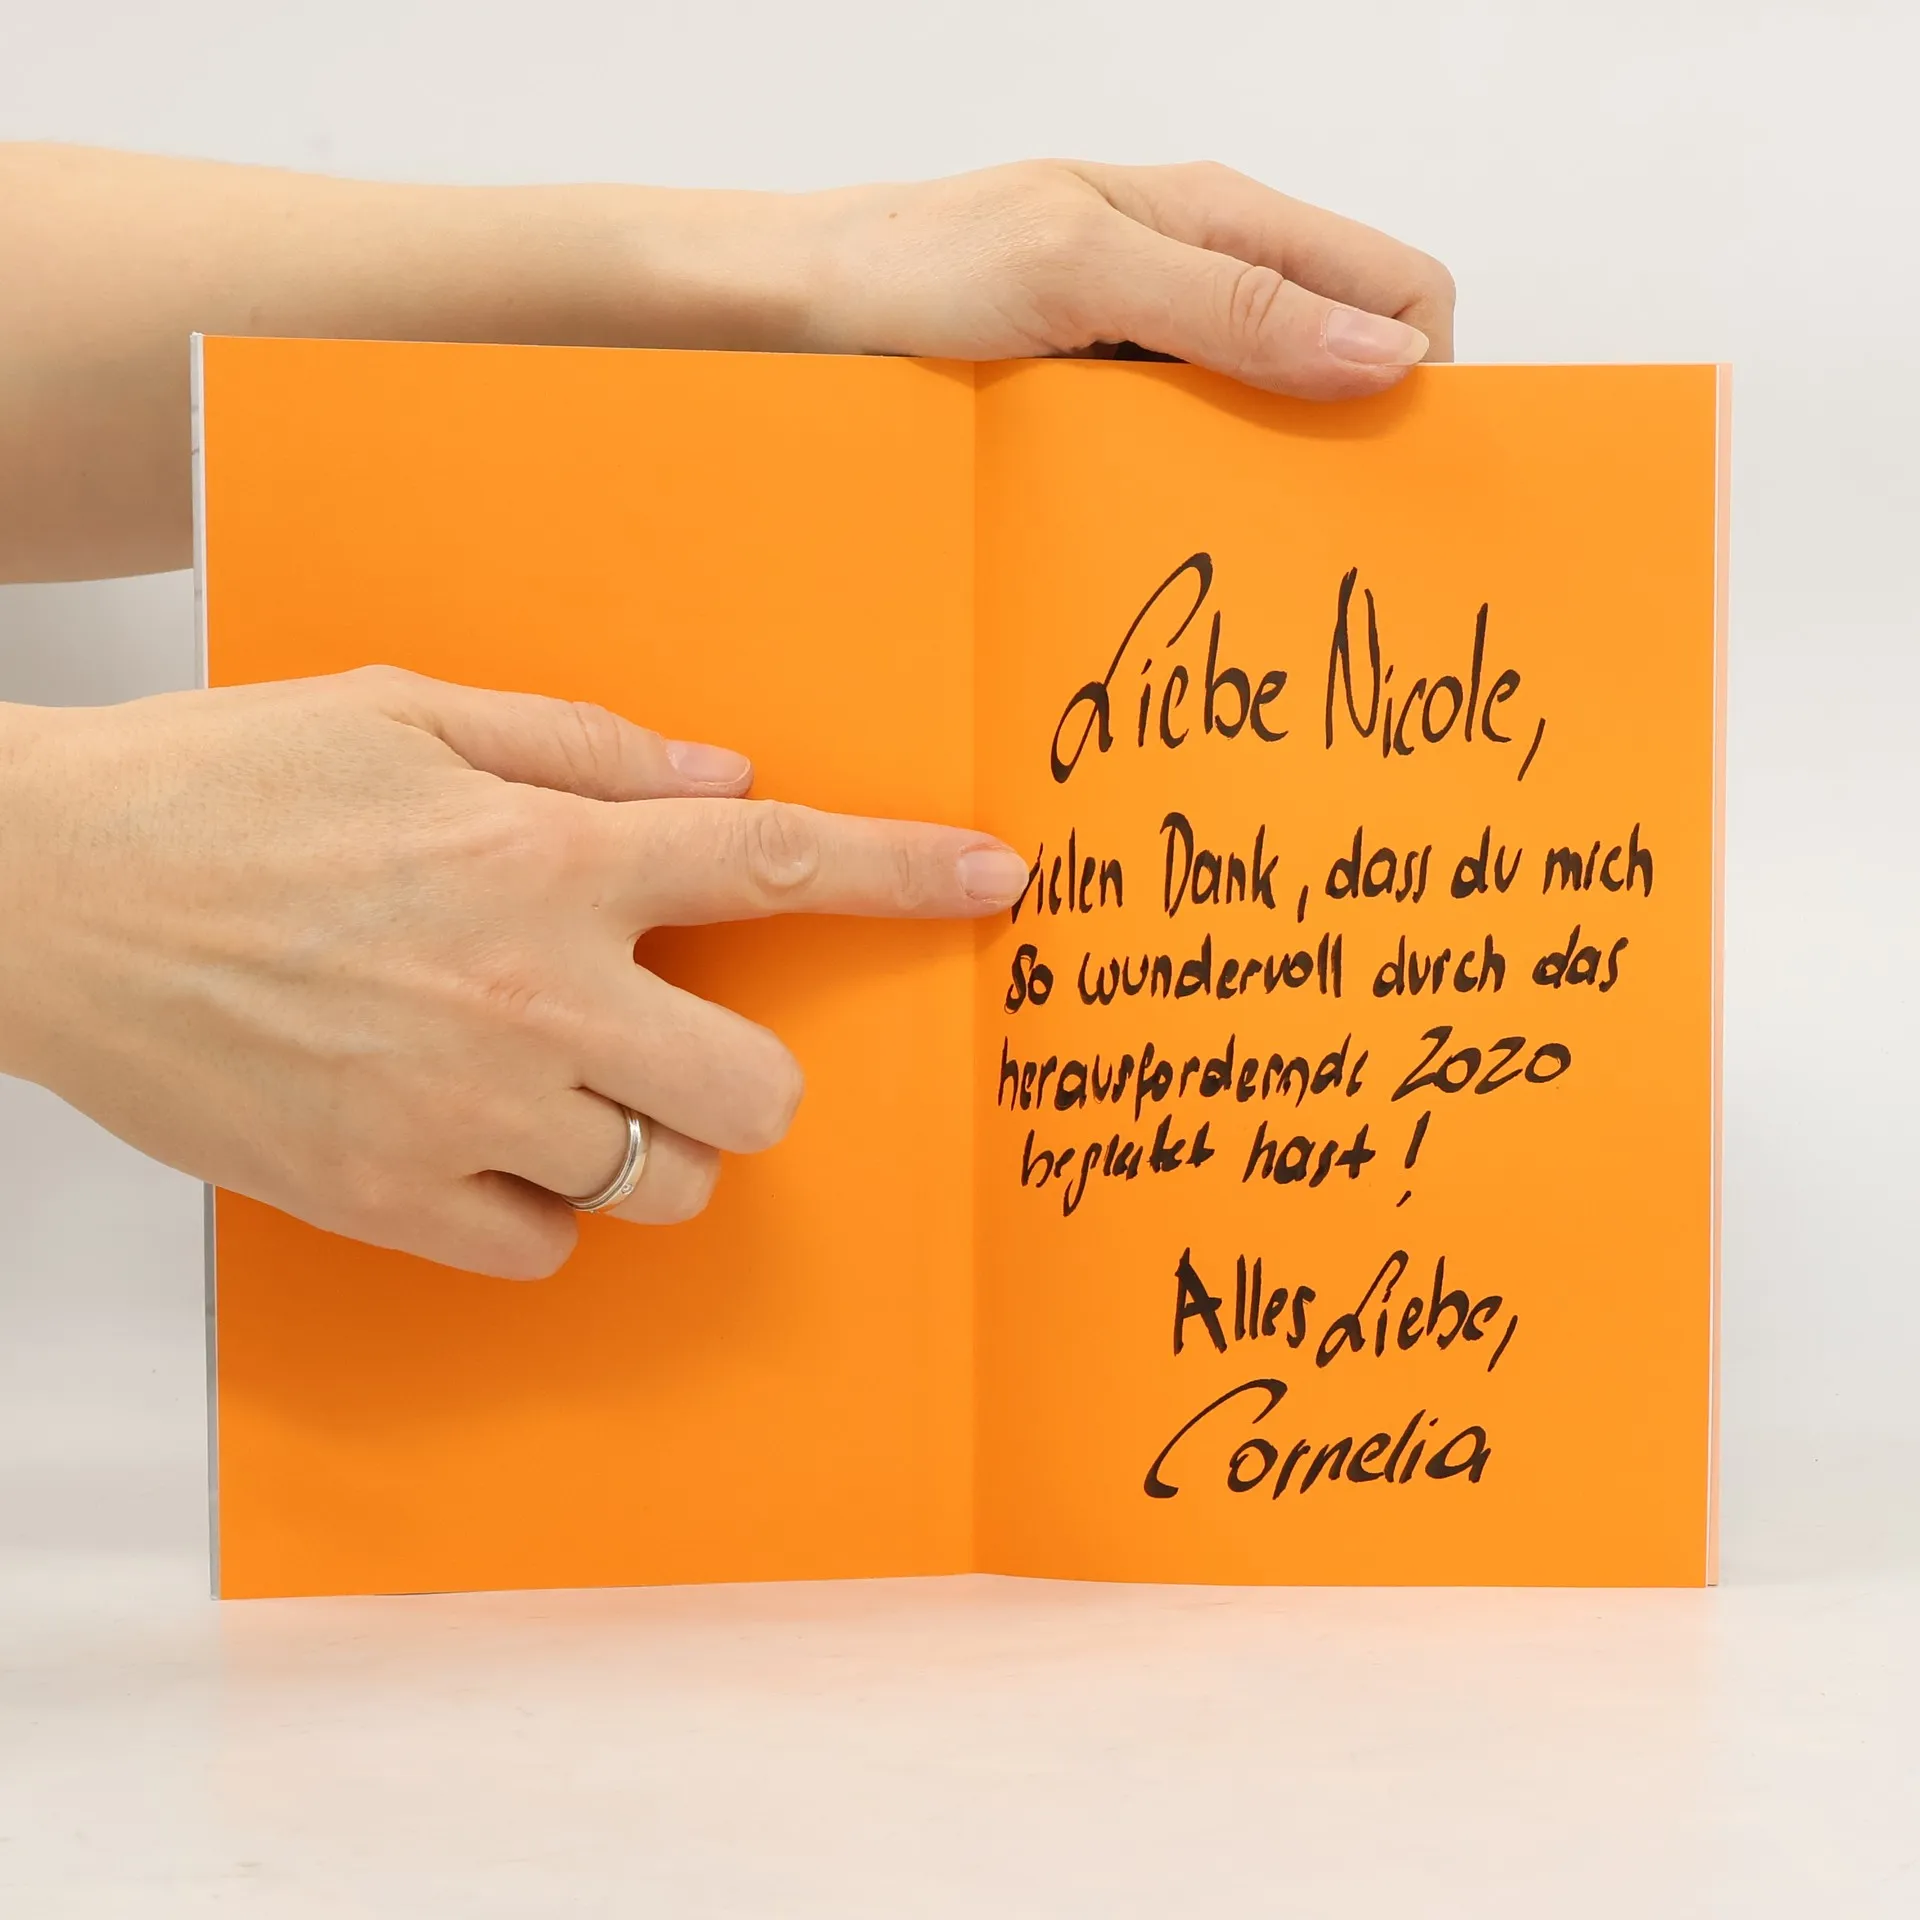 Liebe Nicole,
vielen Dank, dass du mich
so wundervoll durch das
herausfordernde 2020
begleitet hast!
Alles Liebe,
Cornelia